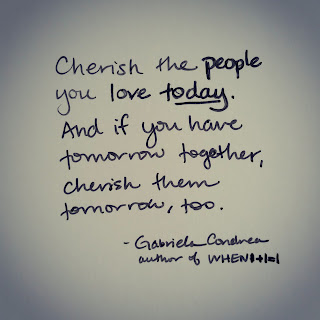 Cherish the people
you love today.
And if you have
tomorrow together,
cherish them
tomorrow, too.
- Gabriela Condrea
author of WHEN1+1=1